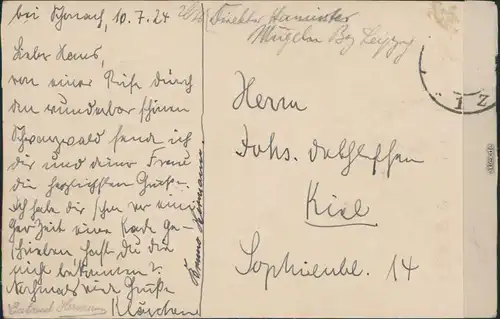 bei Schonach, 10.7.24
Lieber Hans,
von einer Reise durch
den wunderbar schönen
Schwarzwald send ich
dir und deiner Frau
die herzlichsten Grüße.
Ich habe dir schon vor eini-
ger Zeit eine Karte ge-
schrieben hast du die
nicht bekommen?
Nochmals viele Grüße
Klärchen
Bruno
Direktor
Mügeln Bez Leipzig
Herrn
Johs. Dethleffsen
Kiel
Sophienbl. 14
1 Z